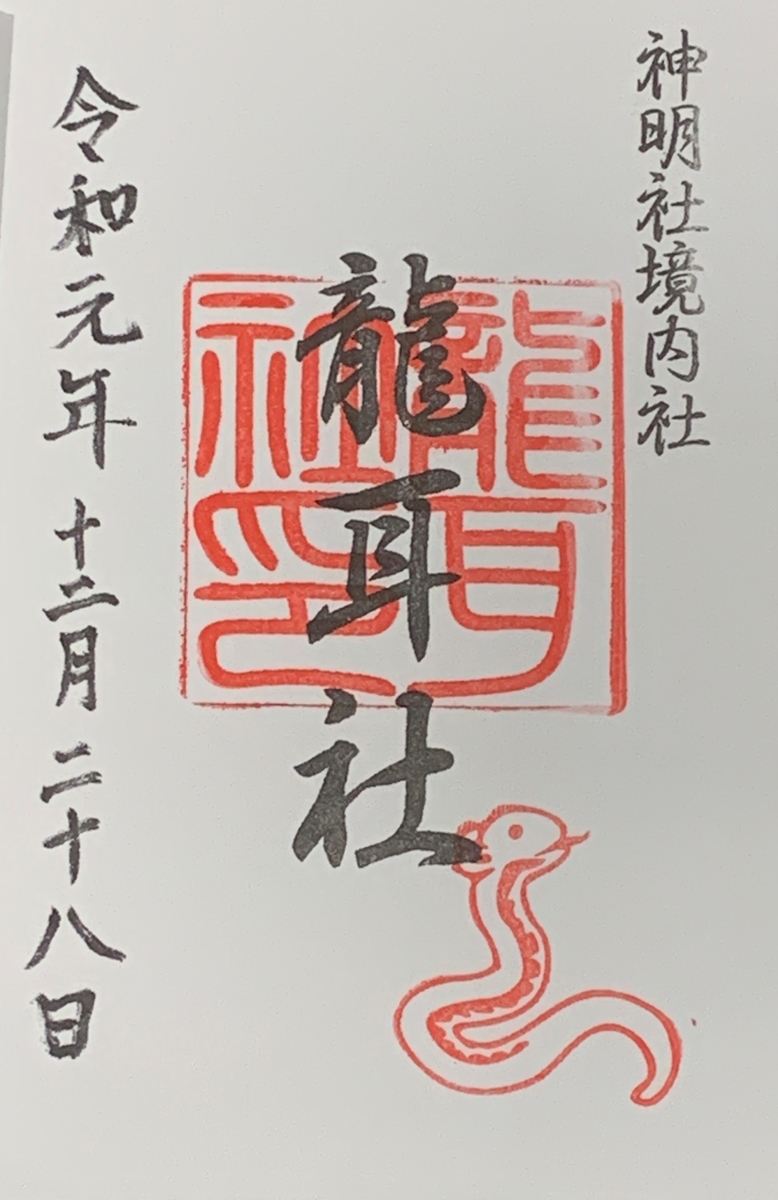 神明社境内社
龍耳社
龍耳社印
令和元年 十二月 二十八日